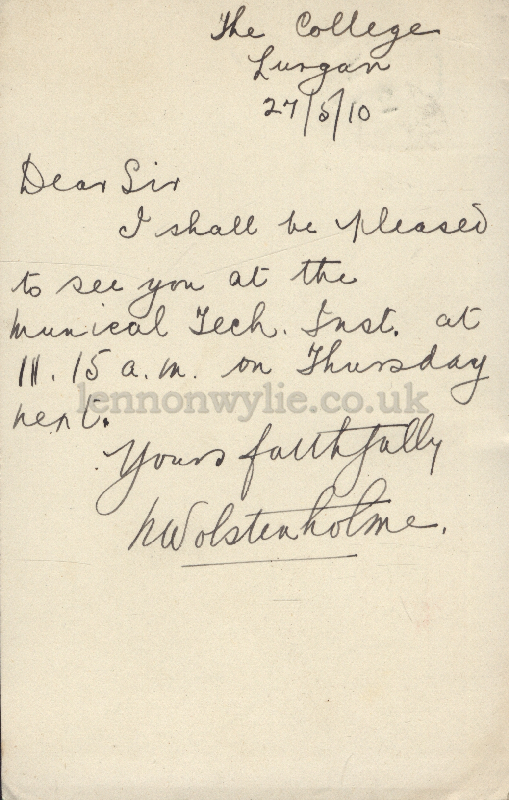 The College
Lurgan
27/5/10 -
Dear Sir
I shall be pleased
to see you at the
Munical Tech. Inst. at
11.15 a.m. on Thursday
next.
lennonwylie.co.uk
Yours faithfully
Wolstenholme.